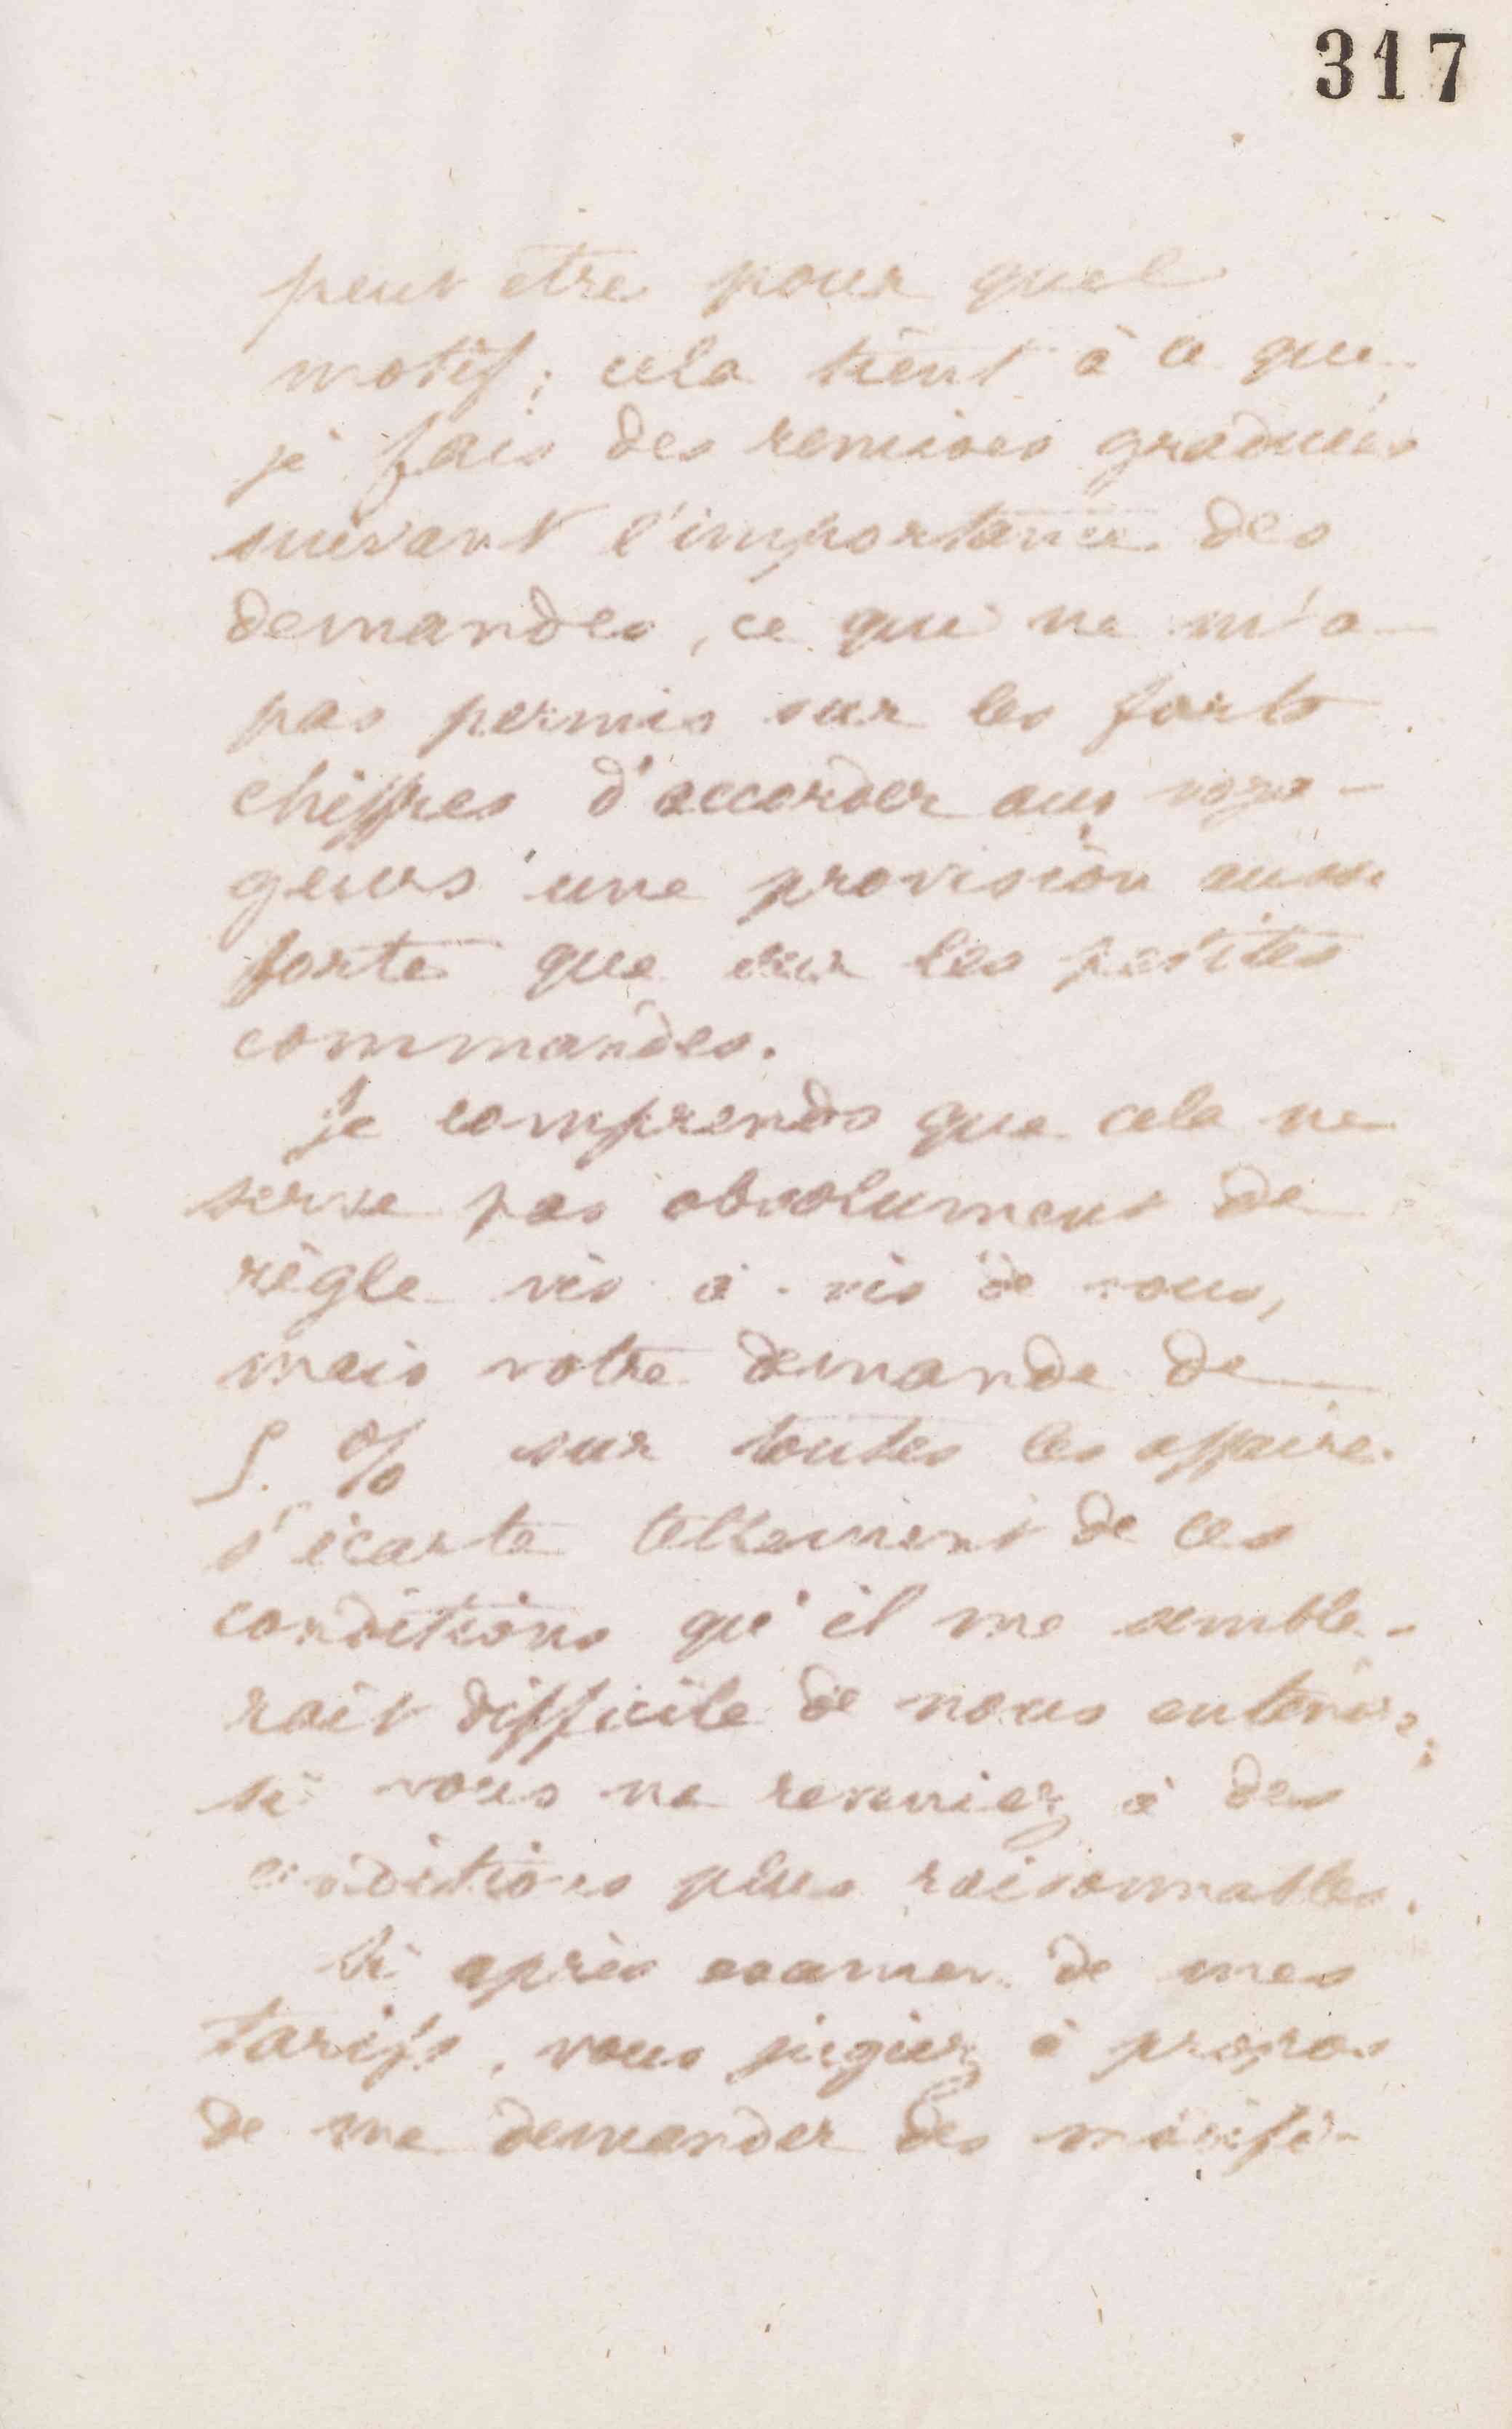 317
peut etre pour quel
motif; cela tient à ce que
je fais des remises graduées
suivant l'importance des
demandes, ce qui ne m'a
pas permis sur les forts
chiffres d'accorder aux voya-
geurs une provision aussi
forte que sur les petites
commandes.
Je comprends que cela ne
serve pas absolument de
règle vis à vis de vous,
mais votre demande de
5. % sur toutes les affaires
s'écarte tellement de ces
conditions qu'il me semble-
rait difficile de nous entendre,
si vous ne reveniez à des
conditions plus raisonnables.
Si après examen de mes
tarifs, vous jugiez à propos
de me demander des modifi-